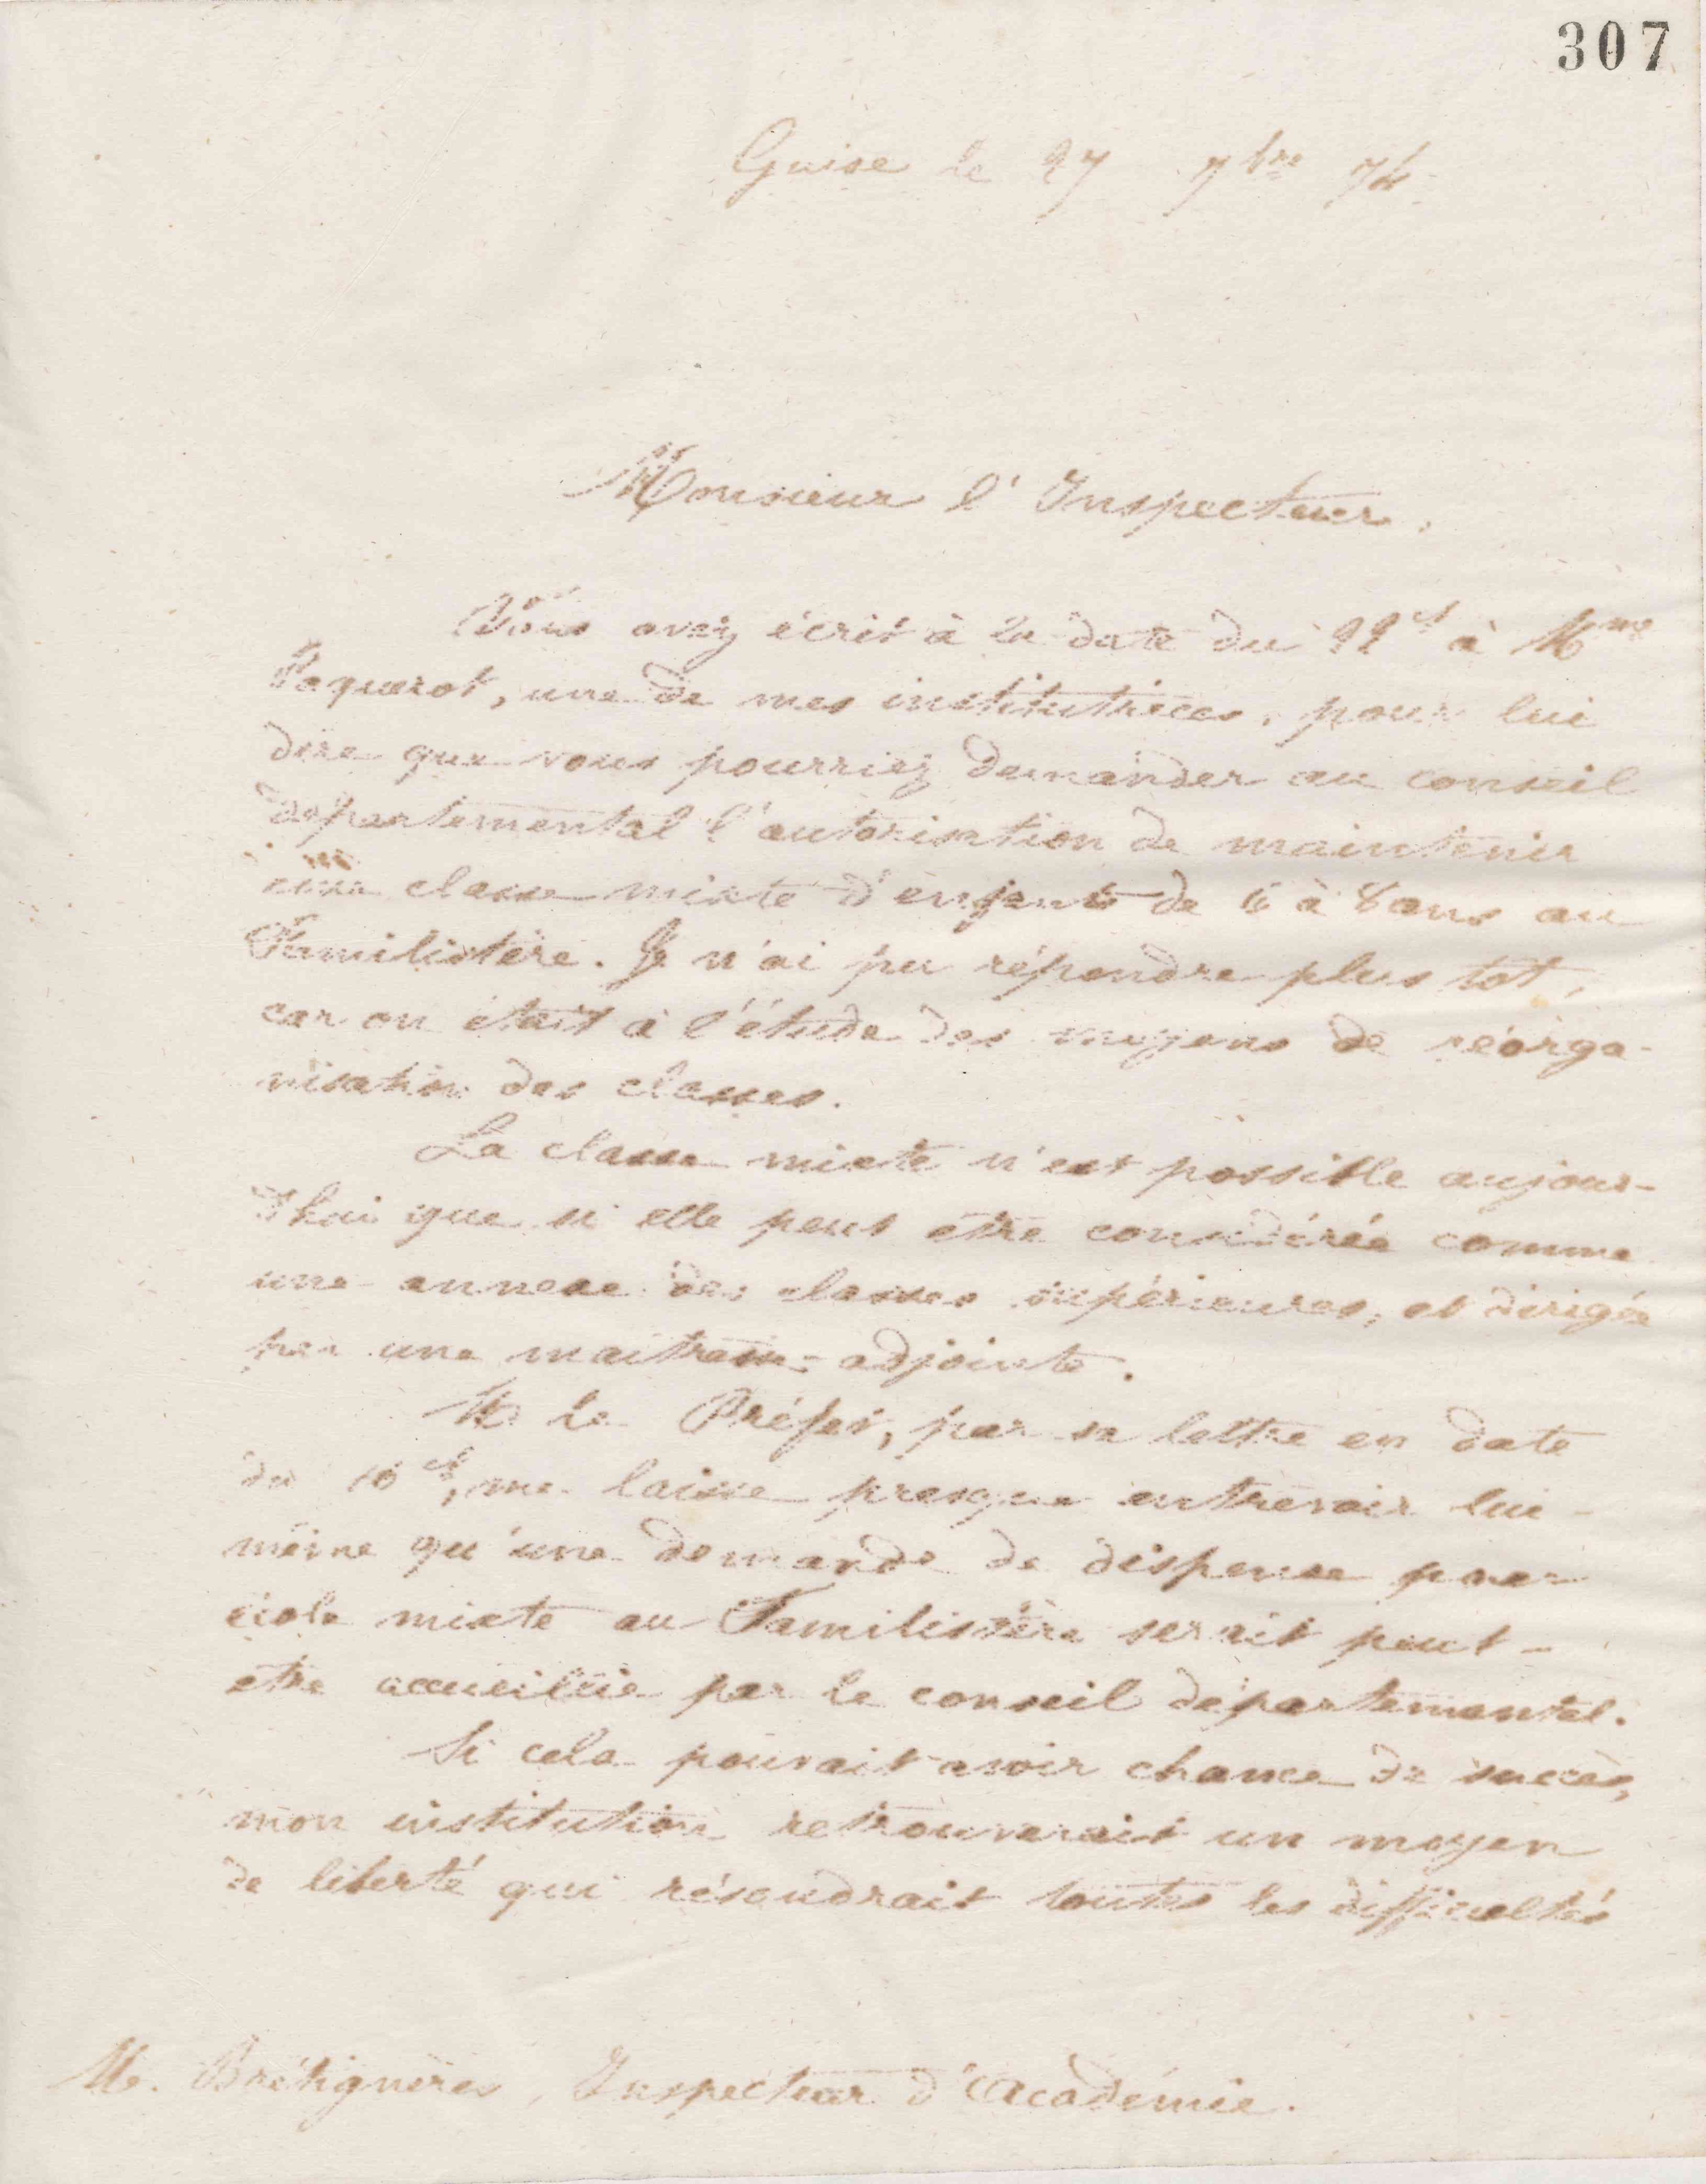 307
Guise le 27 7bre 74
Monsieur l'Inspecteur,
Vous avez écrit à la date du 22 ct à Mme
Paquerot, une de mes institutrices, pour lui
dire que vous pourriez demander au conseil
départemental l'autorisation de maintenir
une classe mixte d'enfants de 6 à 8 ans au
Familistère. Je n'ai pu répondre plus tôt,
car on était à l'étude des moyens de réorga-
nisation des classes.
La classe mixte n'est possible aujour-
d'hui que si elle peut être considérée comme
une annexe des classes supérieures, et dirigée
par une maitresse-adjointe.
M. le Préfet, par sa lettre en date
du 10 ct, me laisse presque entrevoir lui-
même qu'une demande de dispense pour
école mixte au Familistère serait peut-
être accueillie par le conseil départemental.
Si cela pouvait avoir chance de succès,
mon institution retrouverait un moyen
de liberté qui résoudrait toutes les difficultés
M. Brétignères, Inspecteur d'Académie.